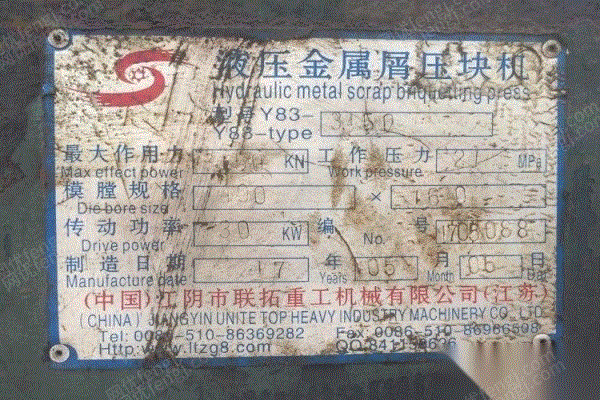 液压金属屑压块机
Hydraulic metal scrap briquetting press
型号Y83-
Y83-type
最大作用力 KN 工作压力 MPa
Max effect power Work pressure
模膛规格 ×
Die bore size
传动功率 30 KW 编 号
Drive power No.
制造日期 17 年 05 月 05 日
Manufacture date Years Month Date
(中国)江阴市联拓重工机械有限公司(江苏)
(CHINA) JIANGYIN UNITE TOP HEAVY INDUSTRY MACHINERY CO., LTD
Tel: 0086-510-86369282 Fax: 0086-510-86966598
Http://www.ltzg8.com QQ: